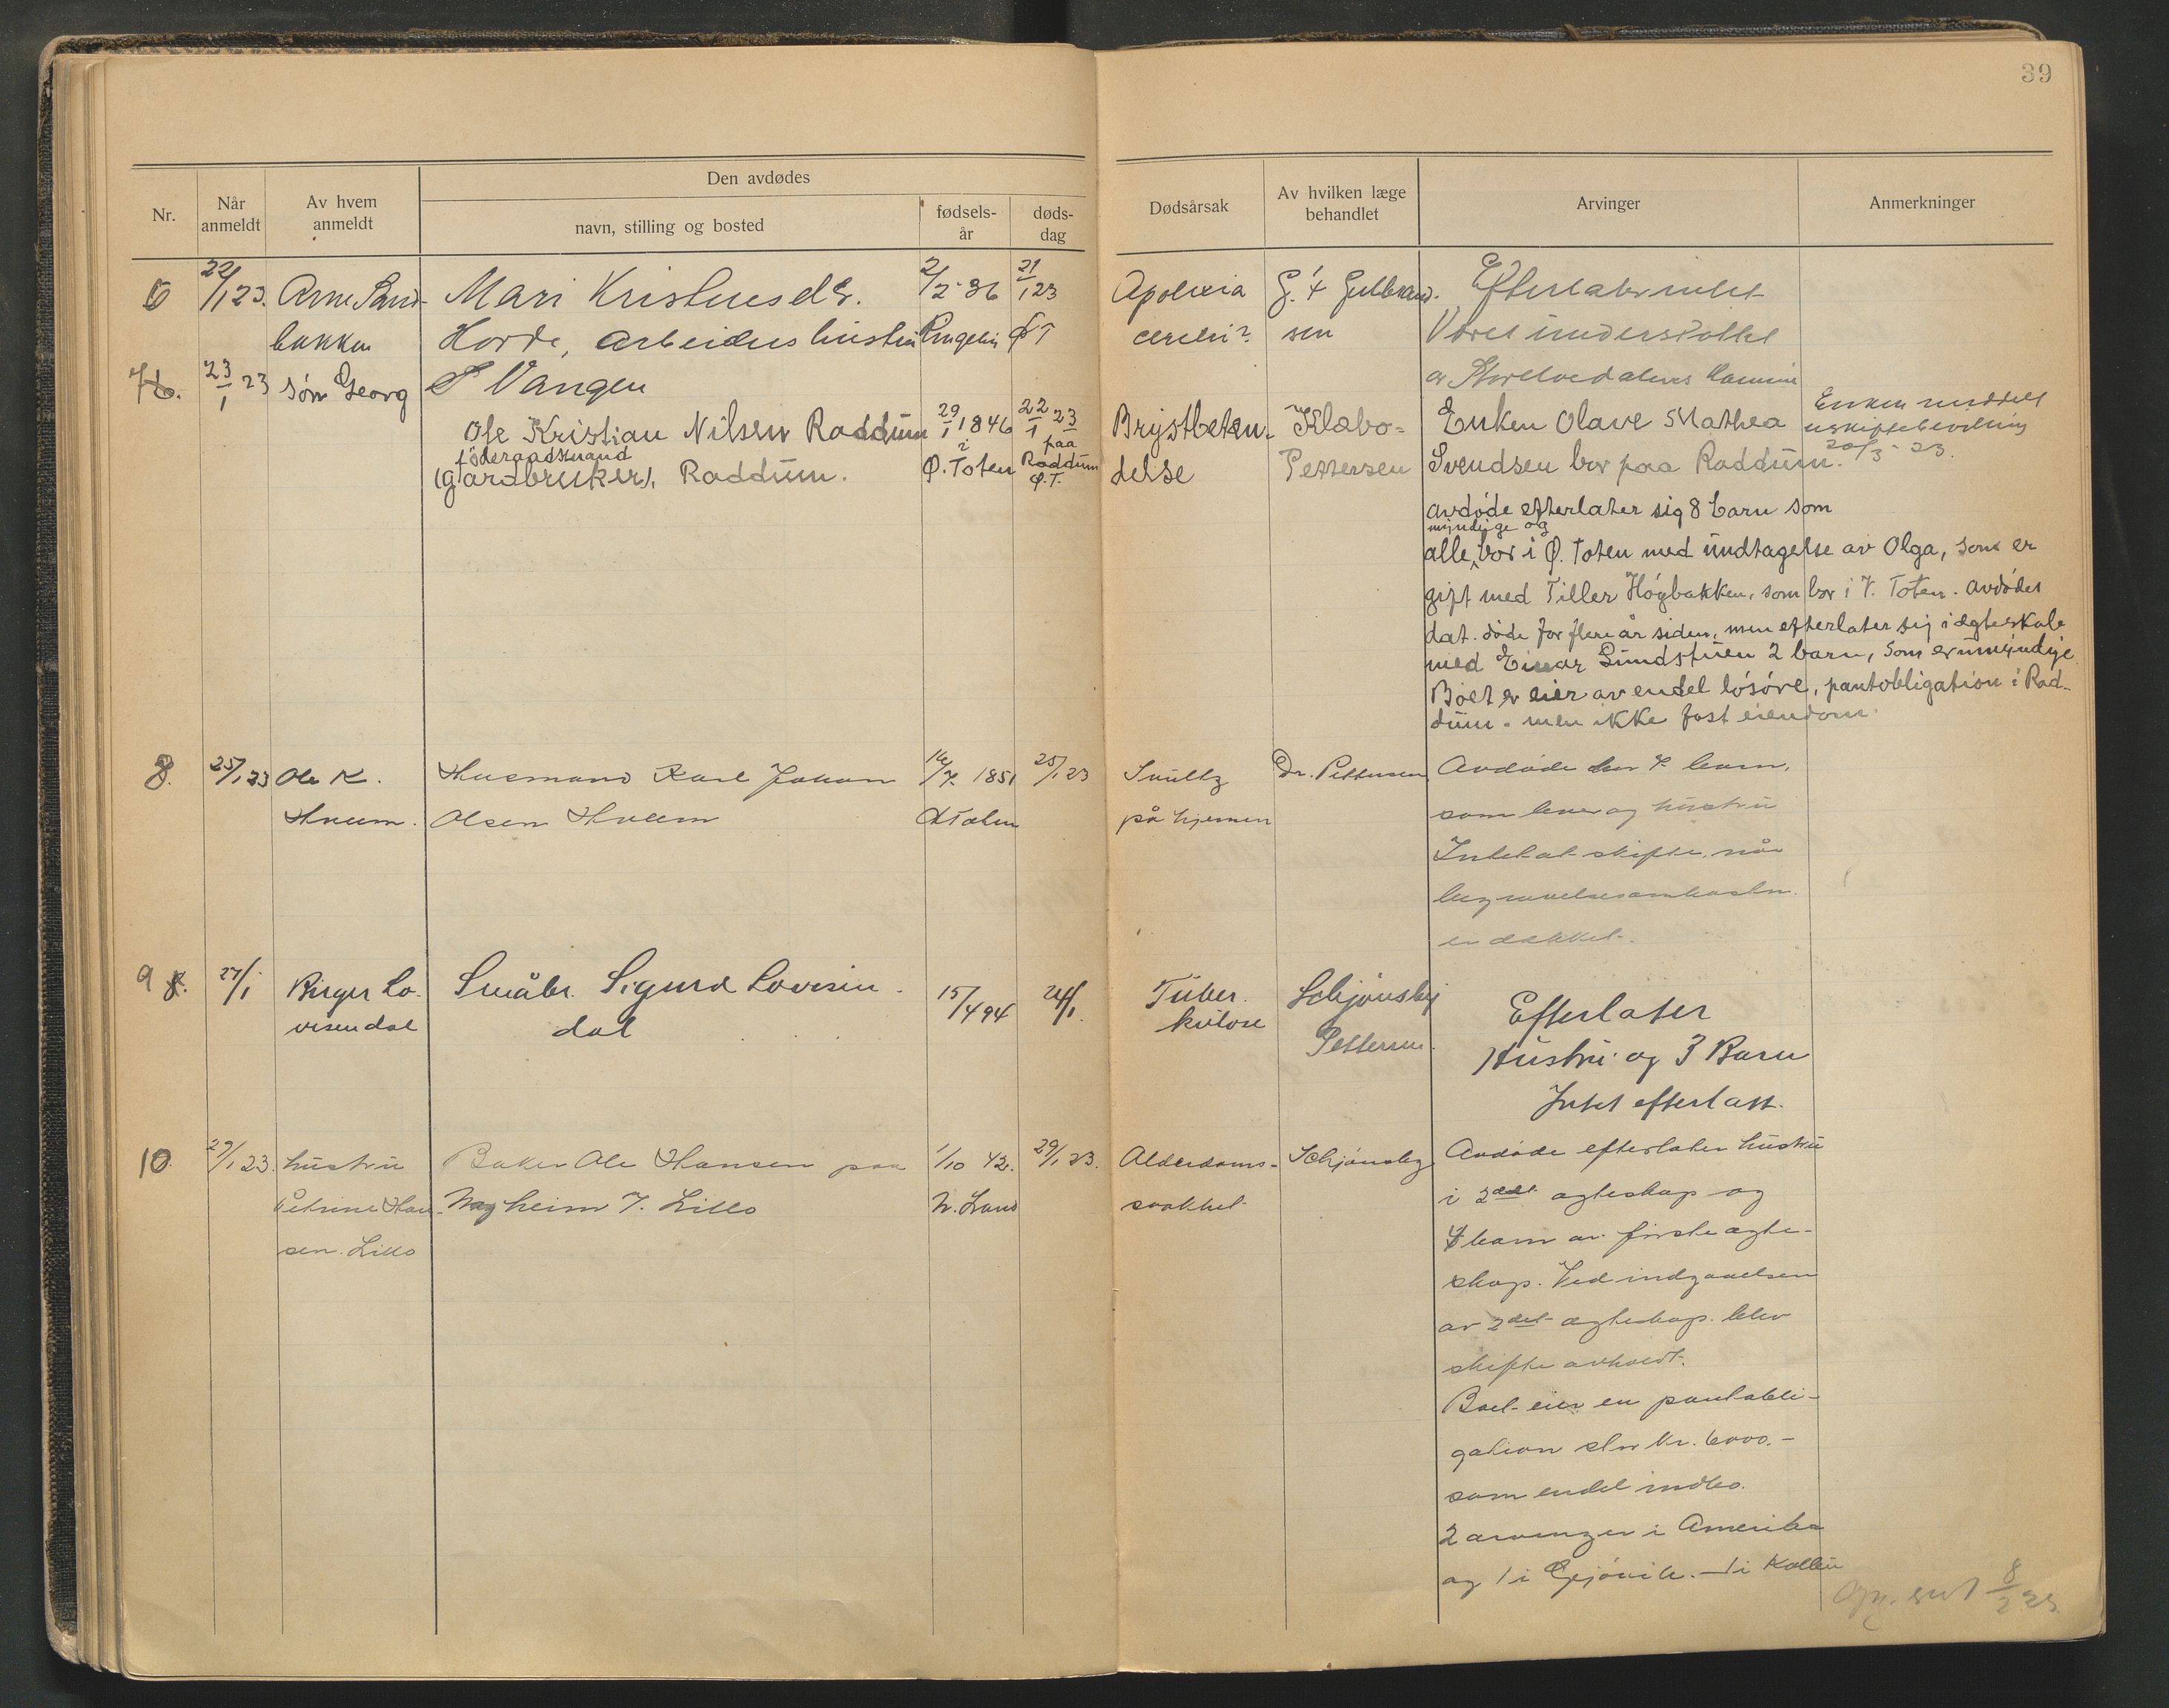 39
Nr.
Når anmeldt
Av hvem anmeldt
Den avdødes
navn, stilling og bosted
fødsels-år
døds-dag
Dødsårsak
Av hvilken læge behandlet
Arvinger
Anmerkninger
6
22/1 23.
Arne Sand-
bakken
Mari
Horde, arbeiders hustru
Vangen
2/2-36
Ringebu
21/1 23
ØT
Apoplexia
cerebri?
Gulbrand-
sen
Efterlater intet
Været understøttet
av
7
23/1 23
søn Georg
Ole Kristian Nilsen Raddum
föderaadsmand
(gårdbruker), Raddum.
29/1 1846
i
Ø. Toten
22/1 23
paa
Raddum
Ø.T.
Brystbeten-
delse
Klæbo-
Pettersen
Enken Olave Mathea
Svendsen bor paa Raddum.
avdøde efterlater sig 8 barn som
myndige og
alle bor i Ø. Toten med undtagelse av Olga, som er
gift med Tiller Høgbakken, som bor i V. Toten. Avdødes
dat. døde for flere år siden, men efterlater sig i ægteskab
med Einar Sundstuen 2 barn, som er umyndige
Boet er eier av endel løsøre, pantobligation i Rad-
dum. men ikke fast eiendom.
Enken meddelt
uskiftebevilling
20/3-23.
8.
25/1 23
Ole K.
Hveem.
Husmand Karl Johan
Olsen Hveem
1851
ØToten
25/1 23
Svullst
på hjernen
Dr. Pettersen
Avdøde har barn,
som lever og hustru
Intet at skifte, når
begravelsesomkostn.
er dækket.
9
27/1
Birger Lo-
visendal
Småbr. Sigurd Lovisen-
dal
15/4 94
24/1.
Tuber-
kulose
Schjønsby
Pettersen.
Efterlater
Hustru og 3 Barn
Intet efterlatt.
10.
29/1 23.
hustru
Petrine Han-
sen. Lillo
Baker Ole Hansen paa
heim V. Lillo
1/10 42.
N. Land
29/1 23.
Alderdoms-
svakhet
Schjønsby
Avdøde efterlater hustru
i 2det ægteskap og
4 barn av første ægte-
skap. Ved indgaaelsen
av 2det ægteskap blev
skifte avholdt.
Boet eier en pantobli-
gation stor kr. 6000.-
som endel indbo.
2 arvinger i Amerika
og 1 i Gjøvik. 1 i Kolbu
Opg. sent 8/2 23.